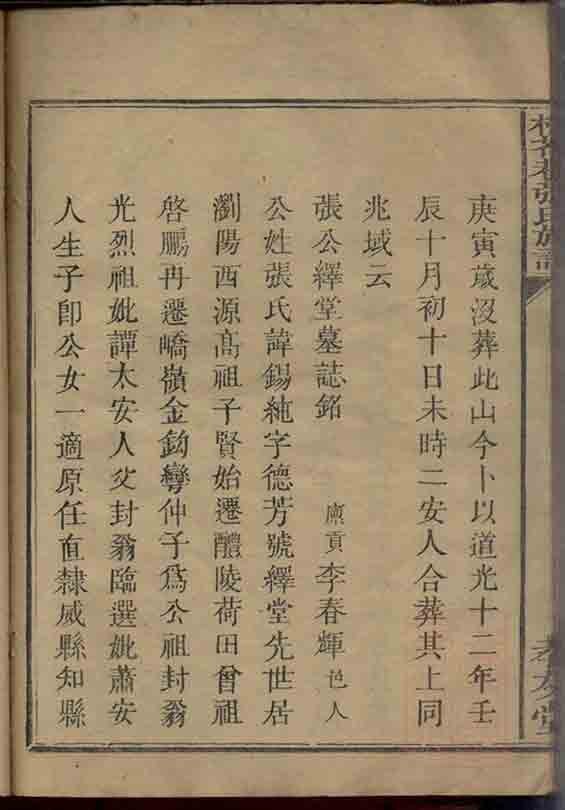 張氏族
孝友堂
庚寅歲沒葬此山今卜以道光十二年壬
辰十月初十日未時二安人合葬其上同
兆域云
張公繹堂墓誌銘 廩貢李春輝邑人
公姓張氏諱錫純字德芳號繹堂先世居
瀏陽西源高祖子賢始遷醴陵荷田曾祖
啓鵬再遷嶠嶺金鈎彎仲子爲公祖封翁
光烈祖妣譚太安人父封翁臨選妣蕭安
人生子卽公女一適原任直隸威縣知縣